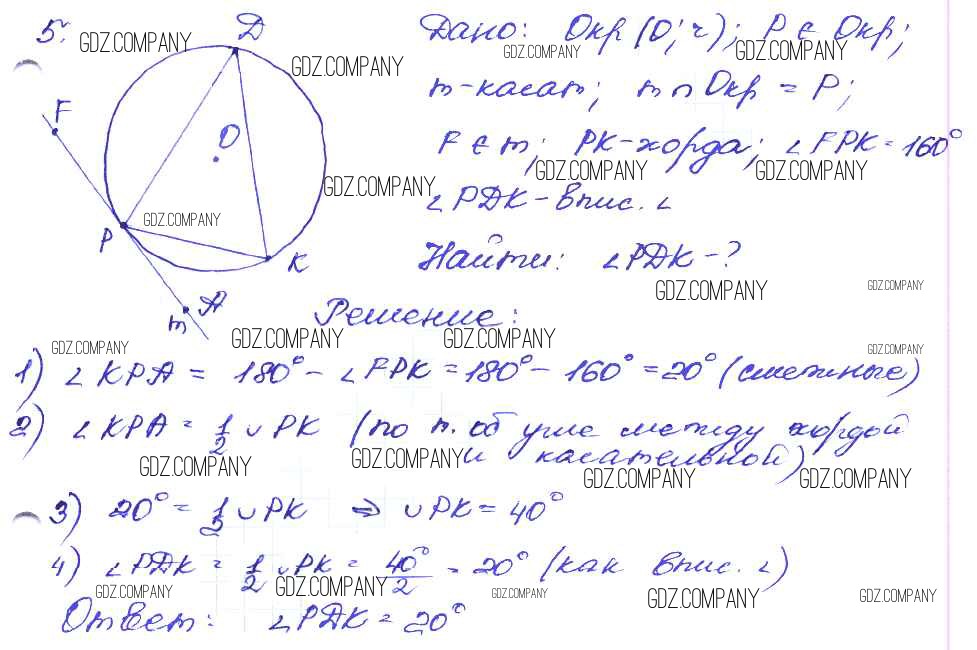 5.
GDZ.COMPANY
D
Дано: Окр (О; r); P ∈ Окр;
GDZ.COMPANY
GDZ.COMPANY
GDZ.COMPANY
m-касат; m ∩ Окр = P;
F
O
F ∈ m; PK-хорда; ∠FPK = 160°
GDZ.COMPANY
GDZ.COMPANY
GDZ.COMPANY
∠PDK - впис. ∠
GDZ.COMPANY
P
K
Найти: ∠PDK - ?
GDZ.COMPANY
GDZ.COMPANY
A
m
Решение:
GDZ.COMPANY
GDZ.COMPANY
GDZ.COMPANY
GDZ.COMPANY
1) ∠KPA = 180° - ∠FPK = 180° - 160° = 20° (смежные)
2) ∠KPA = 1/2 ∪ PK (по т. об угле между хордой
и касательной)
GDZ.COMPANY
GDZ.COMPANY
GDZ.COMPANY
GDZ.COMPANY
3) 20° = 1/2 ∪ PK ⇒ ∪ PK = 40°
4) ∠PDK = 1/2 ∪ PK = 40°/2 = 20° (как впис. ∠)
GDZ.COMPANY
GDZ.COMPANY
GDZ.COMPANY
GDZ.COMPANY
GDZ.COMPANY
Ответ: ∠PDK = 20°